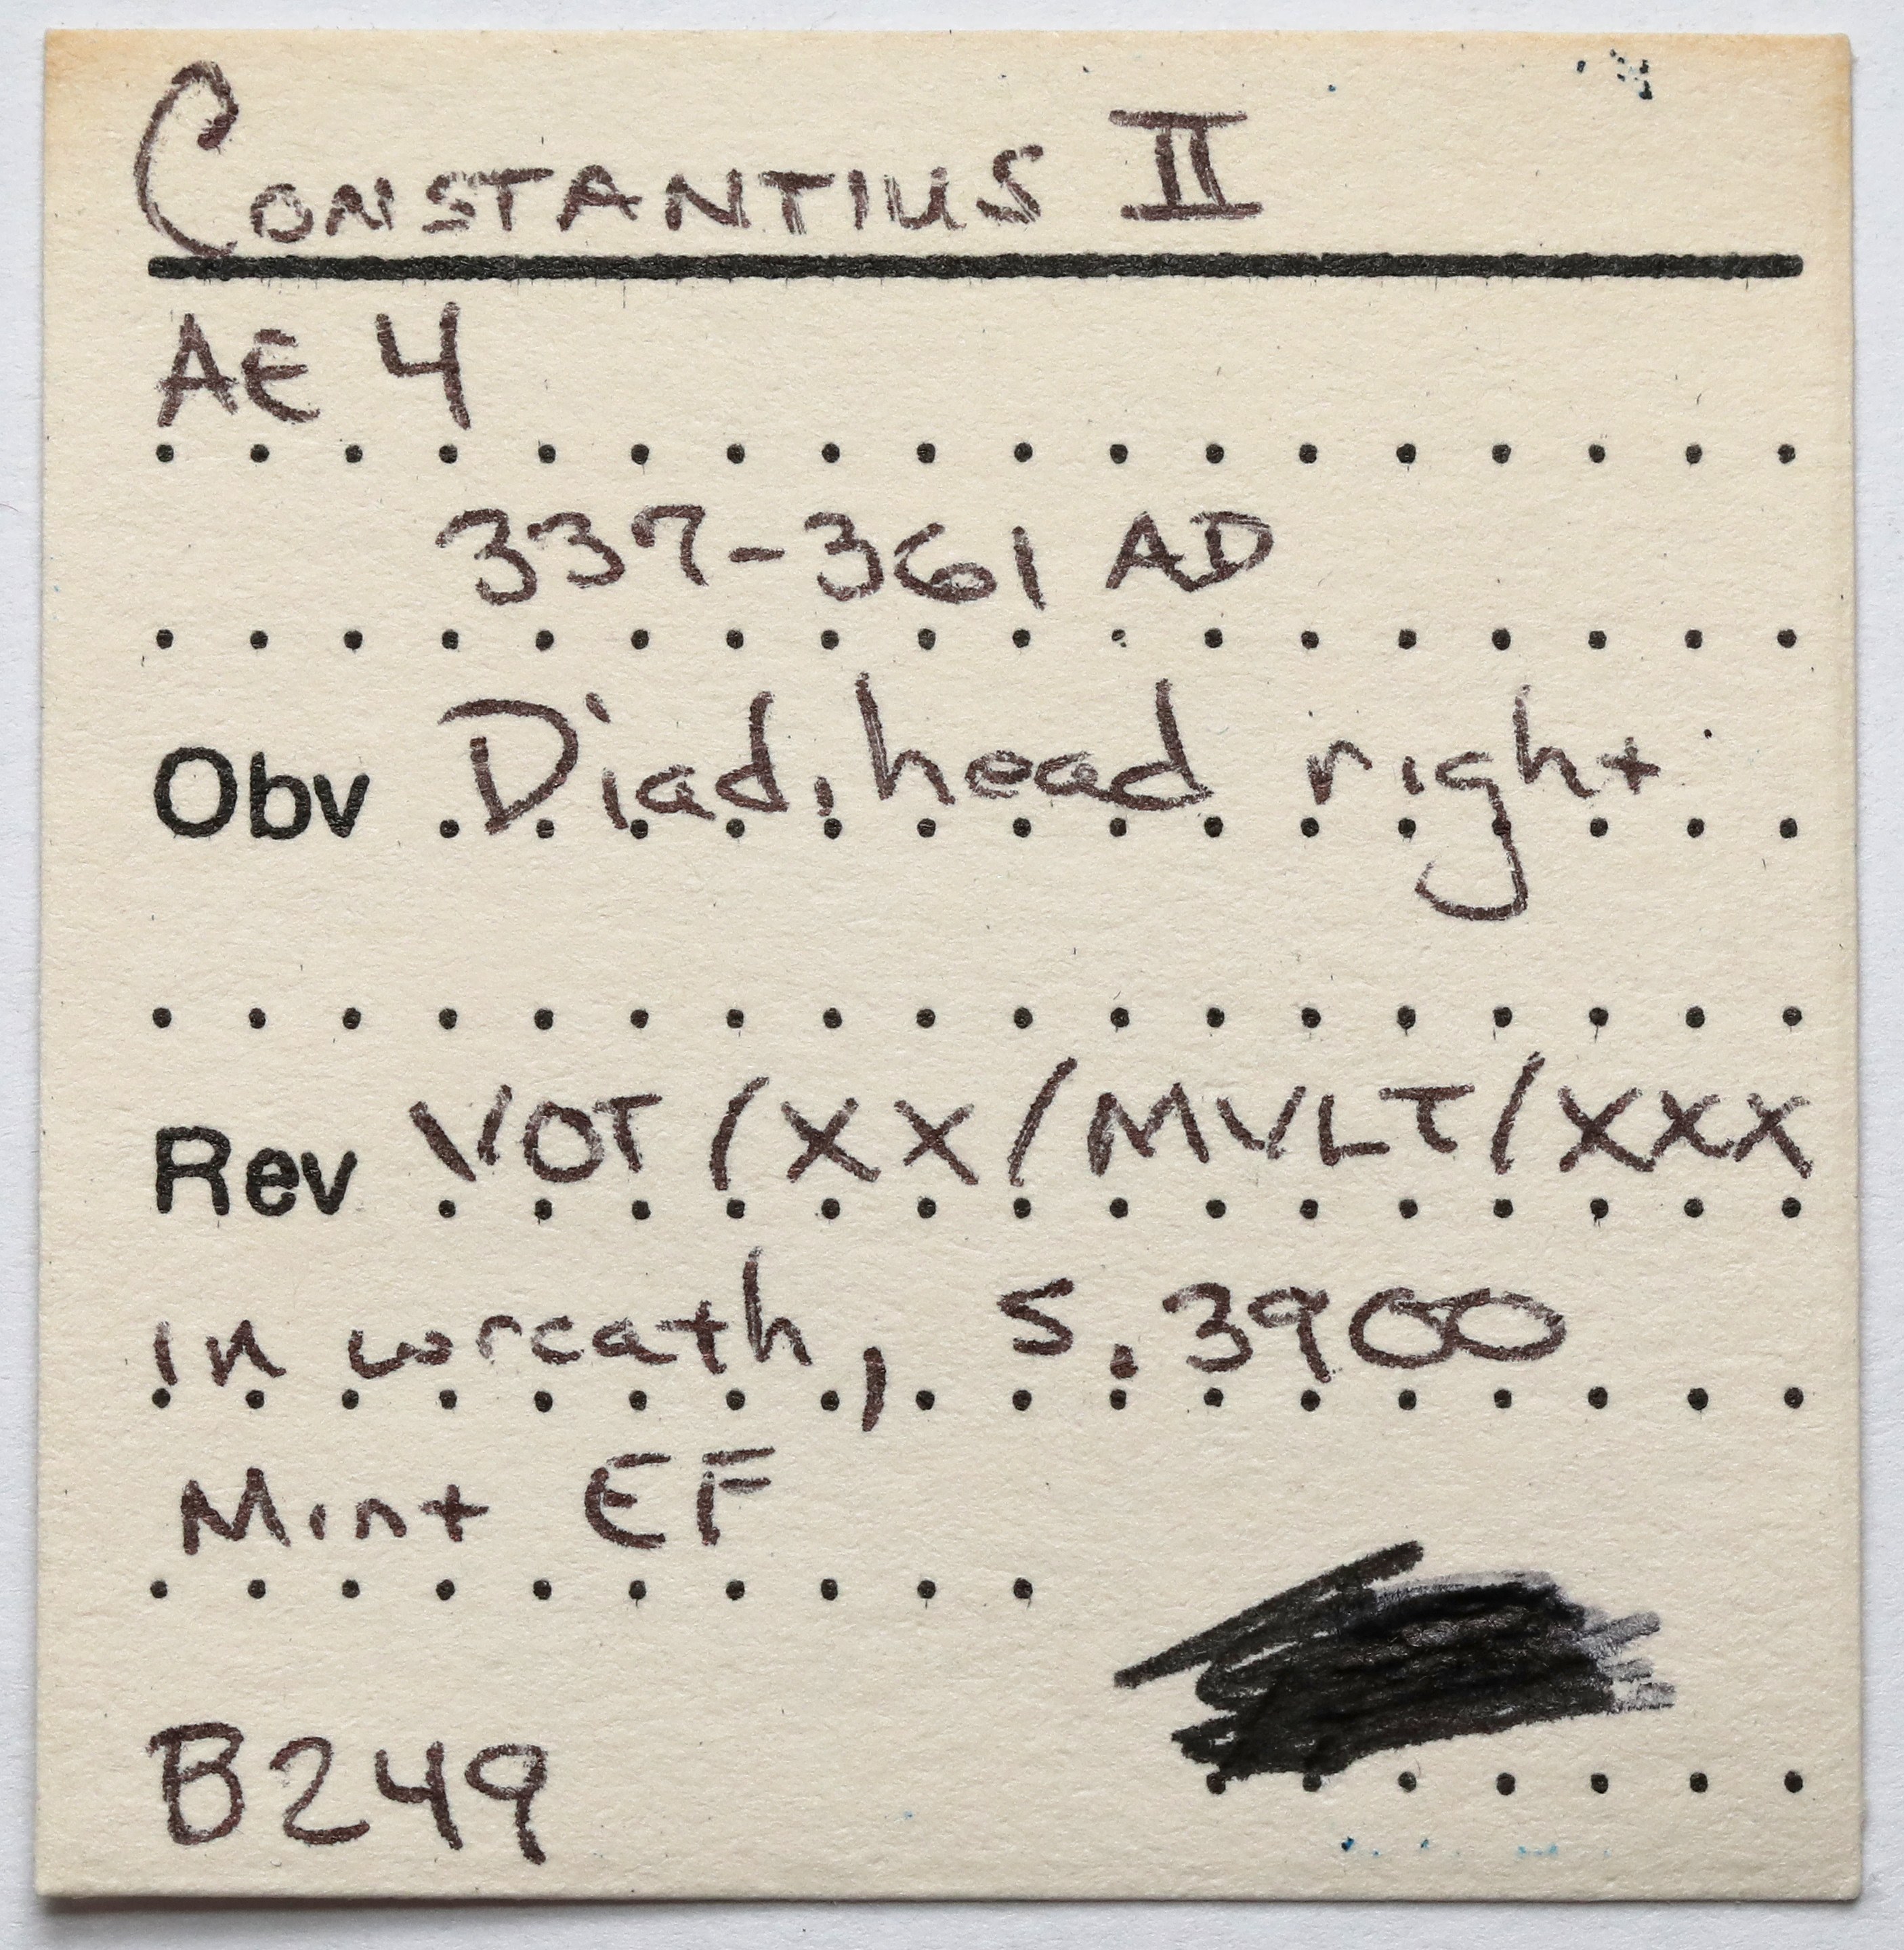 Constantius II
AE 4
337-361 AD
Obv Diad. head right
Rev VOT/XX/MVLT/XXX
in wreath, S.3900
Mint EF
B249